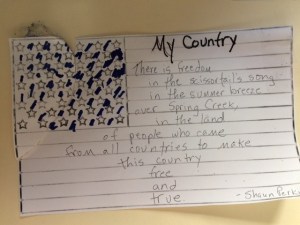 My Country
There is freedom
in the scissortail's song
in the summer breeze
over Spring Creek,
in the land
of people who came
from all countries to make
this country
free
and
true.
- Shaun Perkins